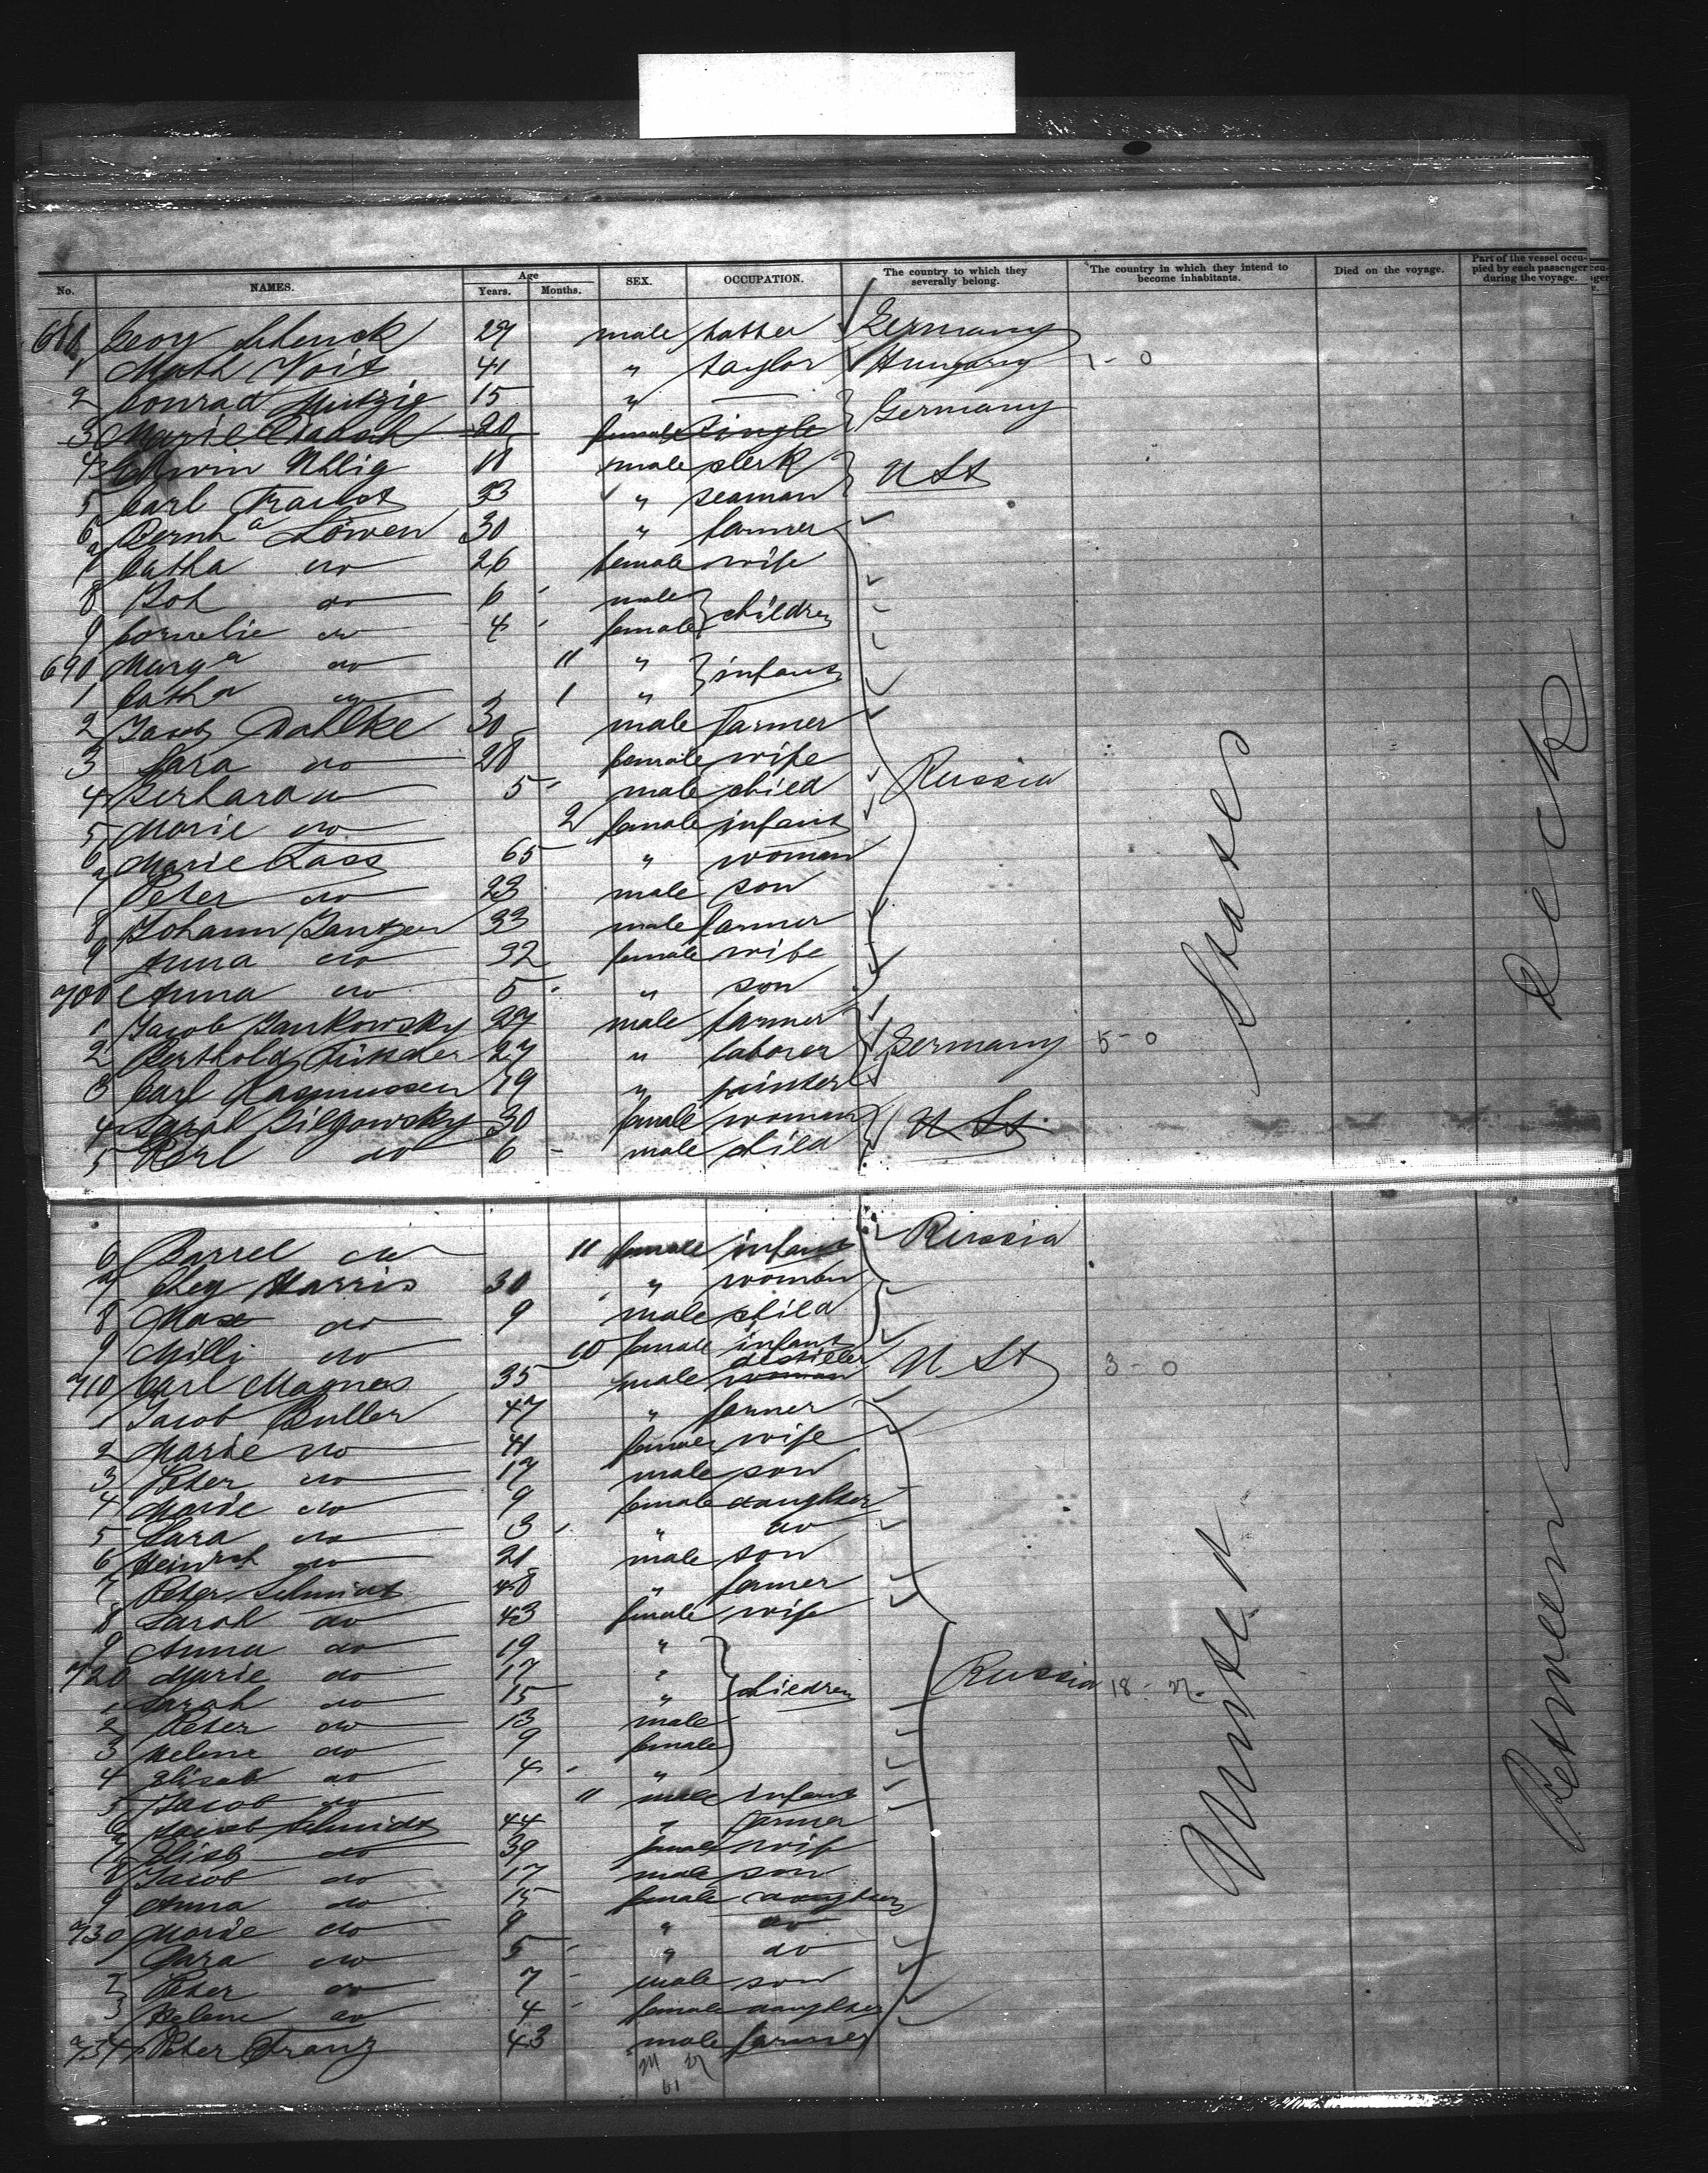 No. NAMES. Age Years. Months. SEX. OCCUPATION. The country to which they severally belong. The country in which they intend to become inhabitants. Died on the voyage. Part of the vessel occupied by each passenger during the voyage.
680 Georg Schenck 29 male hatter Germany
1 Math Voit 41 " taylor Hungary 1 - 0
2 Conrad 15 " — Germany
3 Marie 20 female single
4 Edwin Uhlig 18 male clerk U St
5 Carl 23 " seaman
6 Bernhd Löwen 30 " farmer
7 Catha do 26 female wife
8 Joh do 6 male children
9 Cornelie do 4 female
690 Marga do 11 " infants
1 Catha do 1 "
2 Jacob Dahlke 30 male farmer
3 Sara do 28 female wife
4 Gerhard do 5 male child Russia
5 Marie do 2 female infant
6 Marie Fass 65 " woman
7 Peter do 23 male son
8 Johann Jantzen 33 male farmer
9 Anna do 32 female wife
700 Anna do 5 " son
1 Jacob Jankowsky 29 male farmer
2 Berthold 27 " laborer Germany 5 - 0
3 Carl Rasmussen 19 " painter
4 Sarah Bilgowsky 30 female woman U St
5 Karl do 6 male child
6 do 11 female infant Russia
7 Harris 30 " woman
8 Max do 9 male child
9 Milli do 10 female infant
710 Carl Magnus 35 male woman destiller U St 3 - 0
1 Jacob Buller 47 " farmer
2 Marie do 41 female wife
3 Peter do 17 male son
4 Marie do 9 female daughter
5 Sara do 3 " do
6 Heinrich do 21 male son
7 Peter Schmidt 48 " farmer
8 Sarah do 43 female wife
9 Anna do 19 "
720 Marie do 17 " children Russia 18 - 21.
1 Sarah do 15 "
2 Peter do 13 male
3 Helene do 9 female
4 Elisab do 4 "
5 Jacob do 11 male infant
6 Jacob Schmidt 44 " farmer
7 Elisb do 39 female wife
8 Jacob do 17 male son
9 Anna do 15 female daughter
730 Marie do 9 " do
1 Sara do 5 " do
2 Peter do 7 male son
3 Helene do 4 female daughter
734 Peter Franz 43 male farmer
61
United States
Between Deck